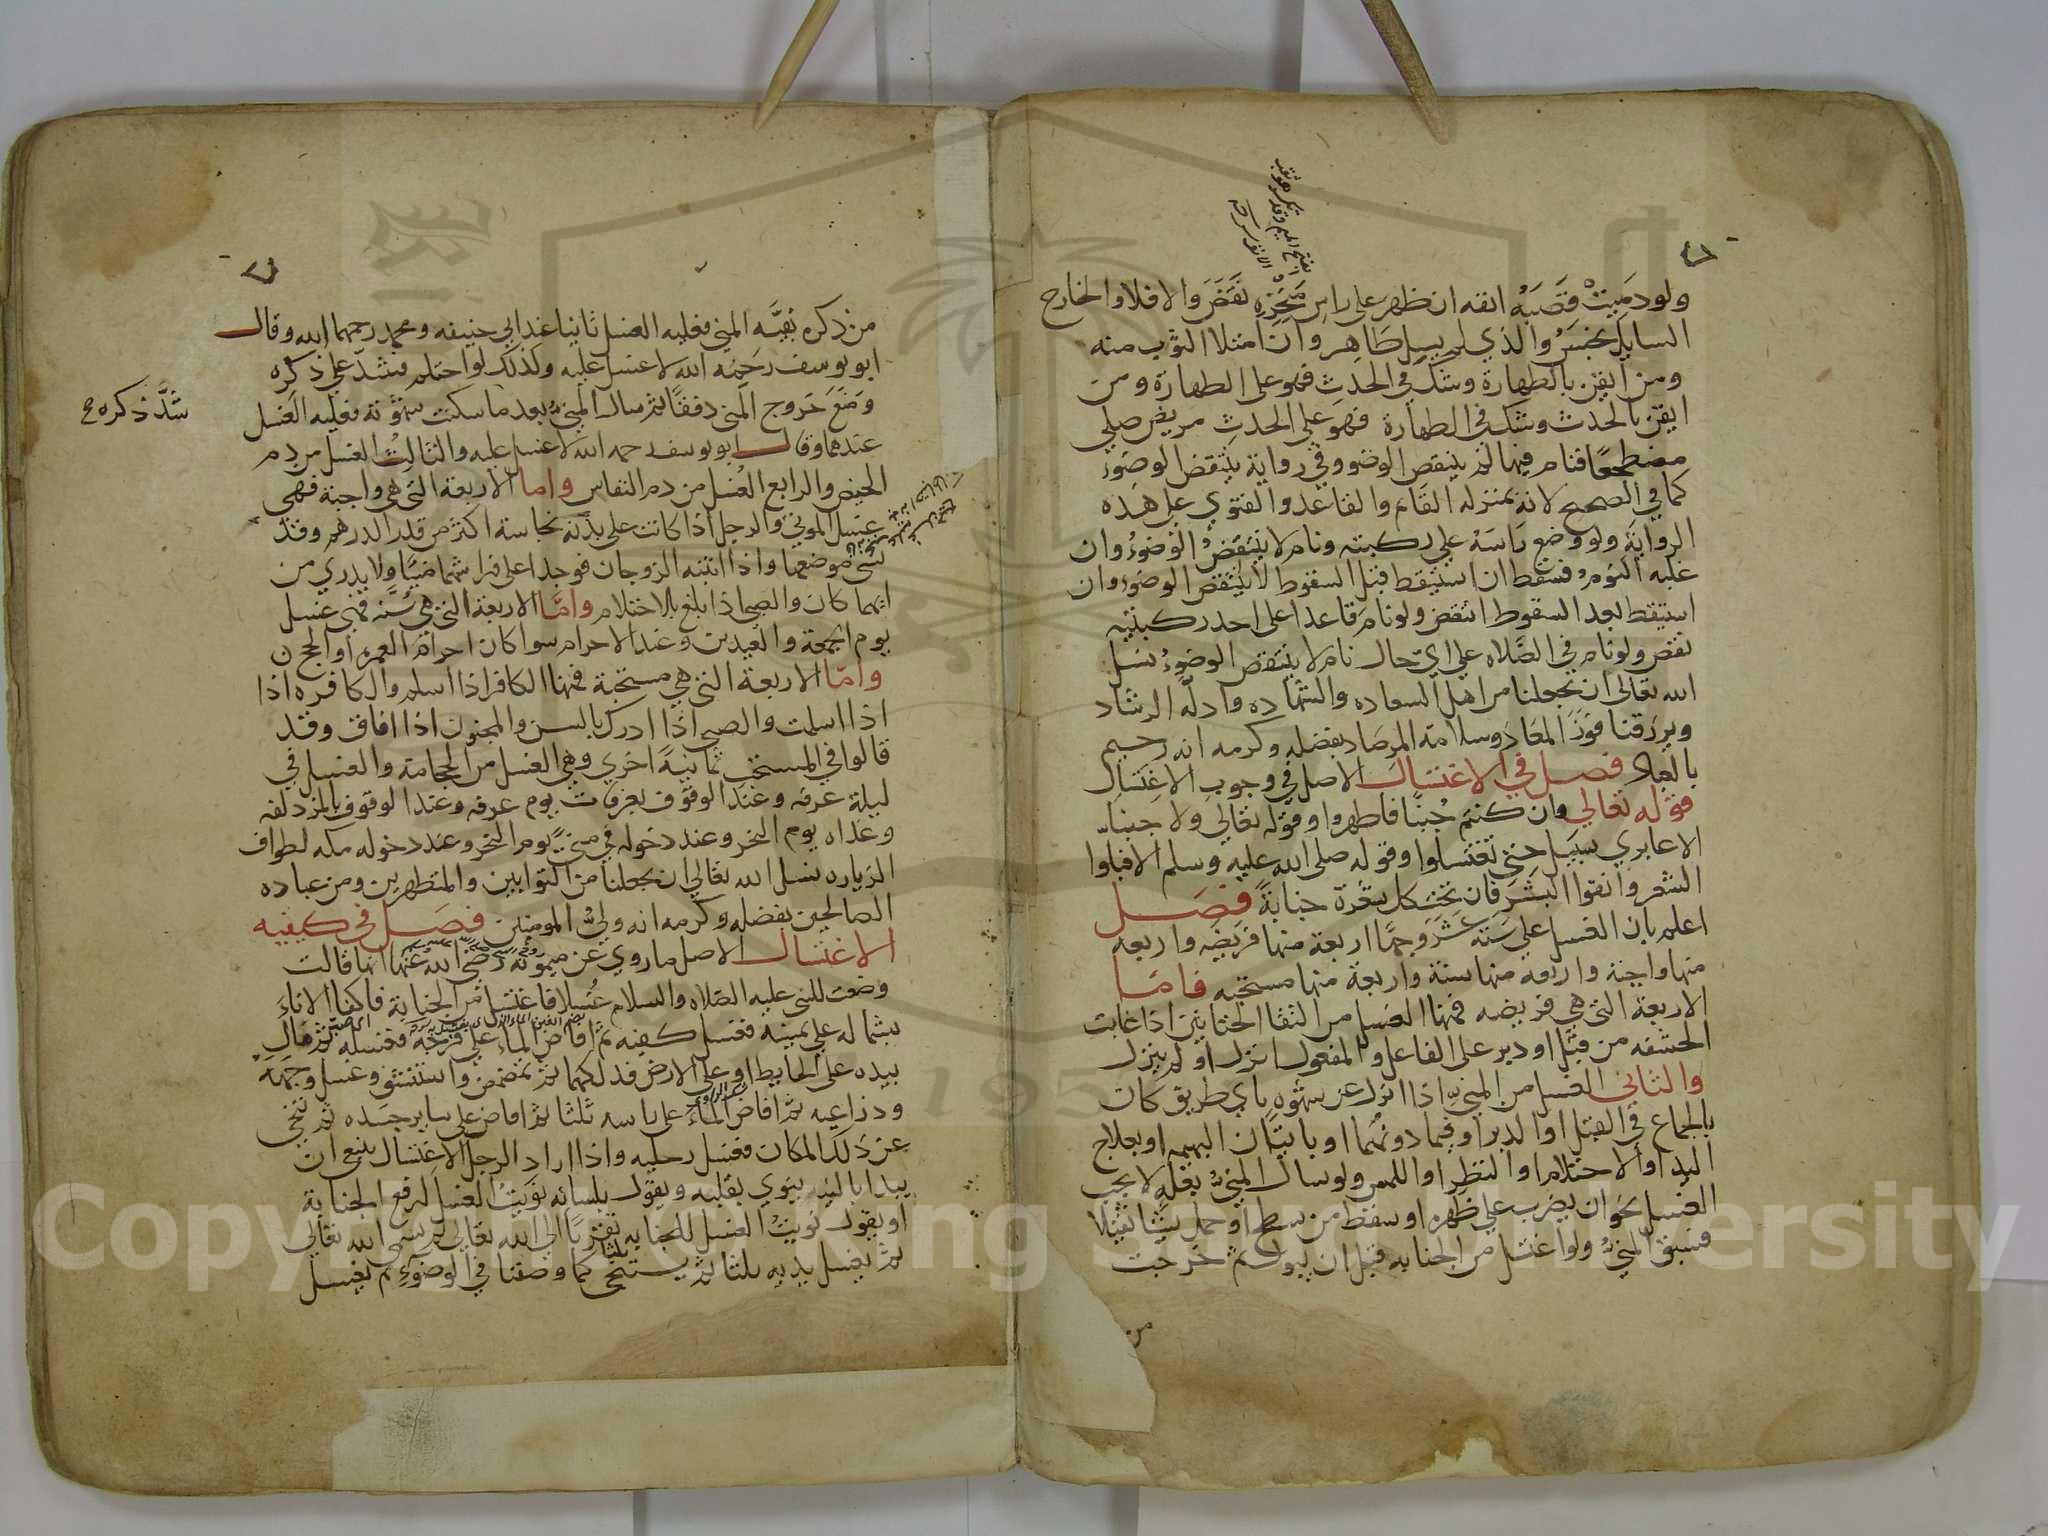 ولو دميت قصبة انفه ان ظهر على راس منخره نقض والا فلا والخارج
السايل نجس والذي لم يسل طاهر وان امتلا الثوب منه
ومن ايقن بالطهارة وشك في الحدث فهو على الطهارة ومن
ايقن بالحدث وشك في الطهارة فهو على الحدث مريض صلى
مضطجعا فنام فيها لم ينقض الوضوء وفي رواية ينتقض الوضوء
كما في الصحيح لانه بمنزلة القايم والقاعد والفتوي على هذه
الرواية ولو وضع راسه على ركبته ونام لا ينتقض الوضوء وان
غلبه النوم فسقط ان استيقظ قبل السقوط لا ينتقض الوضوء وان
استيقظ بعد السقوط انتقض ولو نام قاعدا على احد ركبتيه
نقض ولو نام في الصلاه على اي حال نام لا ينتقض الوضوء نسل
الله تعالى ان يجعلنا من اهل السعاده والشهاده وادلة الرشاد
ويرزقنا فوز المعاد وسلامة المرصاد بفضله وكرمه انه رحيم
بالعباد فصل في الاغتسال الاصل في وجوب الاغتسال
قوله تعالي وان كنتم جنبا فاطهروا وقوله تعالي ولا جنبا
الا عابري سبيل حتى تغتسلوا وقوله صلى الله عليه وسلم الا فبلوا
الشعر وانقوا البشر فان تحت كل شعرة جنابة فصل
اعلم بان الغسل على ستة عشر وجها اربعة منها فريضه واربعه
منها واجبة واربعه منها سنة واربعة منها مستحبه فاما
الاربعة التي هي فريضه فمنها الغسل من التقا الختانين اذا غابت
الحشفه من قبل او دبر على الفاعل والمفعول انزل او لم ينزل
والثاني الغسل من المني اذا انزل عن شهوه باي طريق كان
بالجماع في القبل او الدبر او فيما دونهما او باتيان البهيمه او بعلاج
اليد او الاحتلام او النظر او اللمس ولو سال المني بعلة لا يجب
الغسل نحو ان يضرب على ظهره او سقط من سطح او حمل شيا ثقيلا
فسبق المني ولو اغتسل من الجنابه قبل ان يبول ثم خرجت
من
من ذكره بقية المني فعليه الغسل ثانيا عند ابي حنيفه ومحمد رحمهما الله وقال
ابو يوسف رحمه الله لا غسل عليه وكذلك لو احتلم فشد على ذكره
شد ذكره
ومنع خروج المني دفقا ثم سال المني بعد ما سكنت شهوته فعليه الغسل
عندهما وقال ابو يوسف رحمه الله لا غسل عليه والثالث الغسل من دم
الحيض والرابع الغسل من دم النفاس واما الاربعة التي هي واجبة فهي
غسل الموتي والرجل اذا كانت على بدنه نجاسة اكثر من قدر الدرهم وقد
نسي موضعها واذا انتبه الزوجان فوجدا على فراشهما منيا ولا يدري من
ايهما كان والصبي اذا بلغ بالاحتلام واما الاربعة التي هي سنة فهي غسل
يوم الجمعة والعيدين وعند الاحرام سوا كان احرام العمره او الحج
واما الاربعة التي هي مستحبة فمنها الكافر اذا اسلم والكافره اذا
اذا اسلمت والصبي اذا ادرك بالسن والمجنون اذا افاق وقد
قالوا في المستحب ثمانية اخري وهي الغسل من الحجامة والغسل في
ليلة عرفه وعند الوقوف بعرفات يوم عرفه وعند الوقوف بالمزدلفه
وغداه يوم النحر وعند دخوله في منى يوم النحر وعند دخوله مكه لطواف
الزياره نسل الله تعالي ان يجعلنا من التوابين والمتطهرين ومن عباده
الصالحين بفضله وكرمه انه ولي المومنين فصل في كيفيه
الاغتسال الاصل ما روي عن ميمونة رضي الله عنها انها قالت
وضعت للنبي عليه الصلاه والسلام غسلا فاغتسل من الجنابة فاكفا الاناء
بشماله على يمينه فغسل كفيه ثم افاض الماء على فرجه فغسله ثم مال
بيده على الحايط او على الارض فدلكهما ثم تمضمض واستنشق وغسل وجهه
وذراعيه ثم افاض الماء على راسه ثلثا ثم افاض على ساير جسده ثم تنحي
عن ذلك المكان فغسل رجليه واذا اراد الرجل الاغتسال ينبغي ان
يبدا بالنيه ينوي بقلبه ويقول بلسانه نويت الغسل لرفع الجنابة
او يقول نويت الغسل للجنابه تقربا الي الله تعالى ثم يسمي الله تعالي
ثم يغسل يديه ثلثا ثم يستنجي كما وصفنا في الوضوء ثم يغسل
Copyright © King Saud University